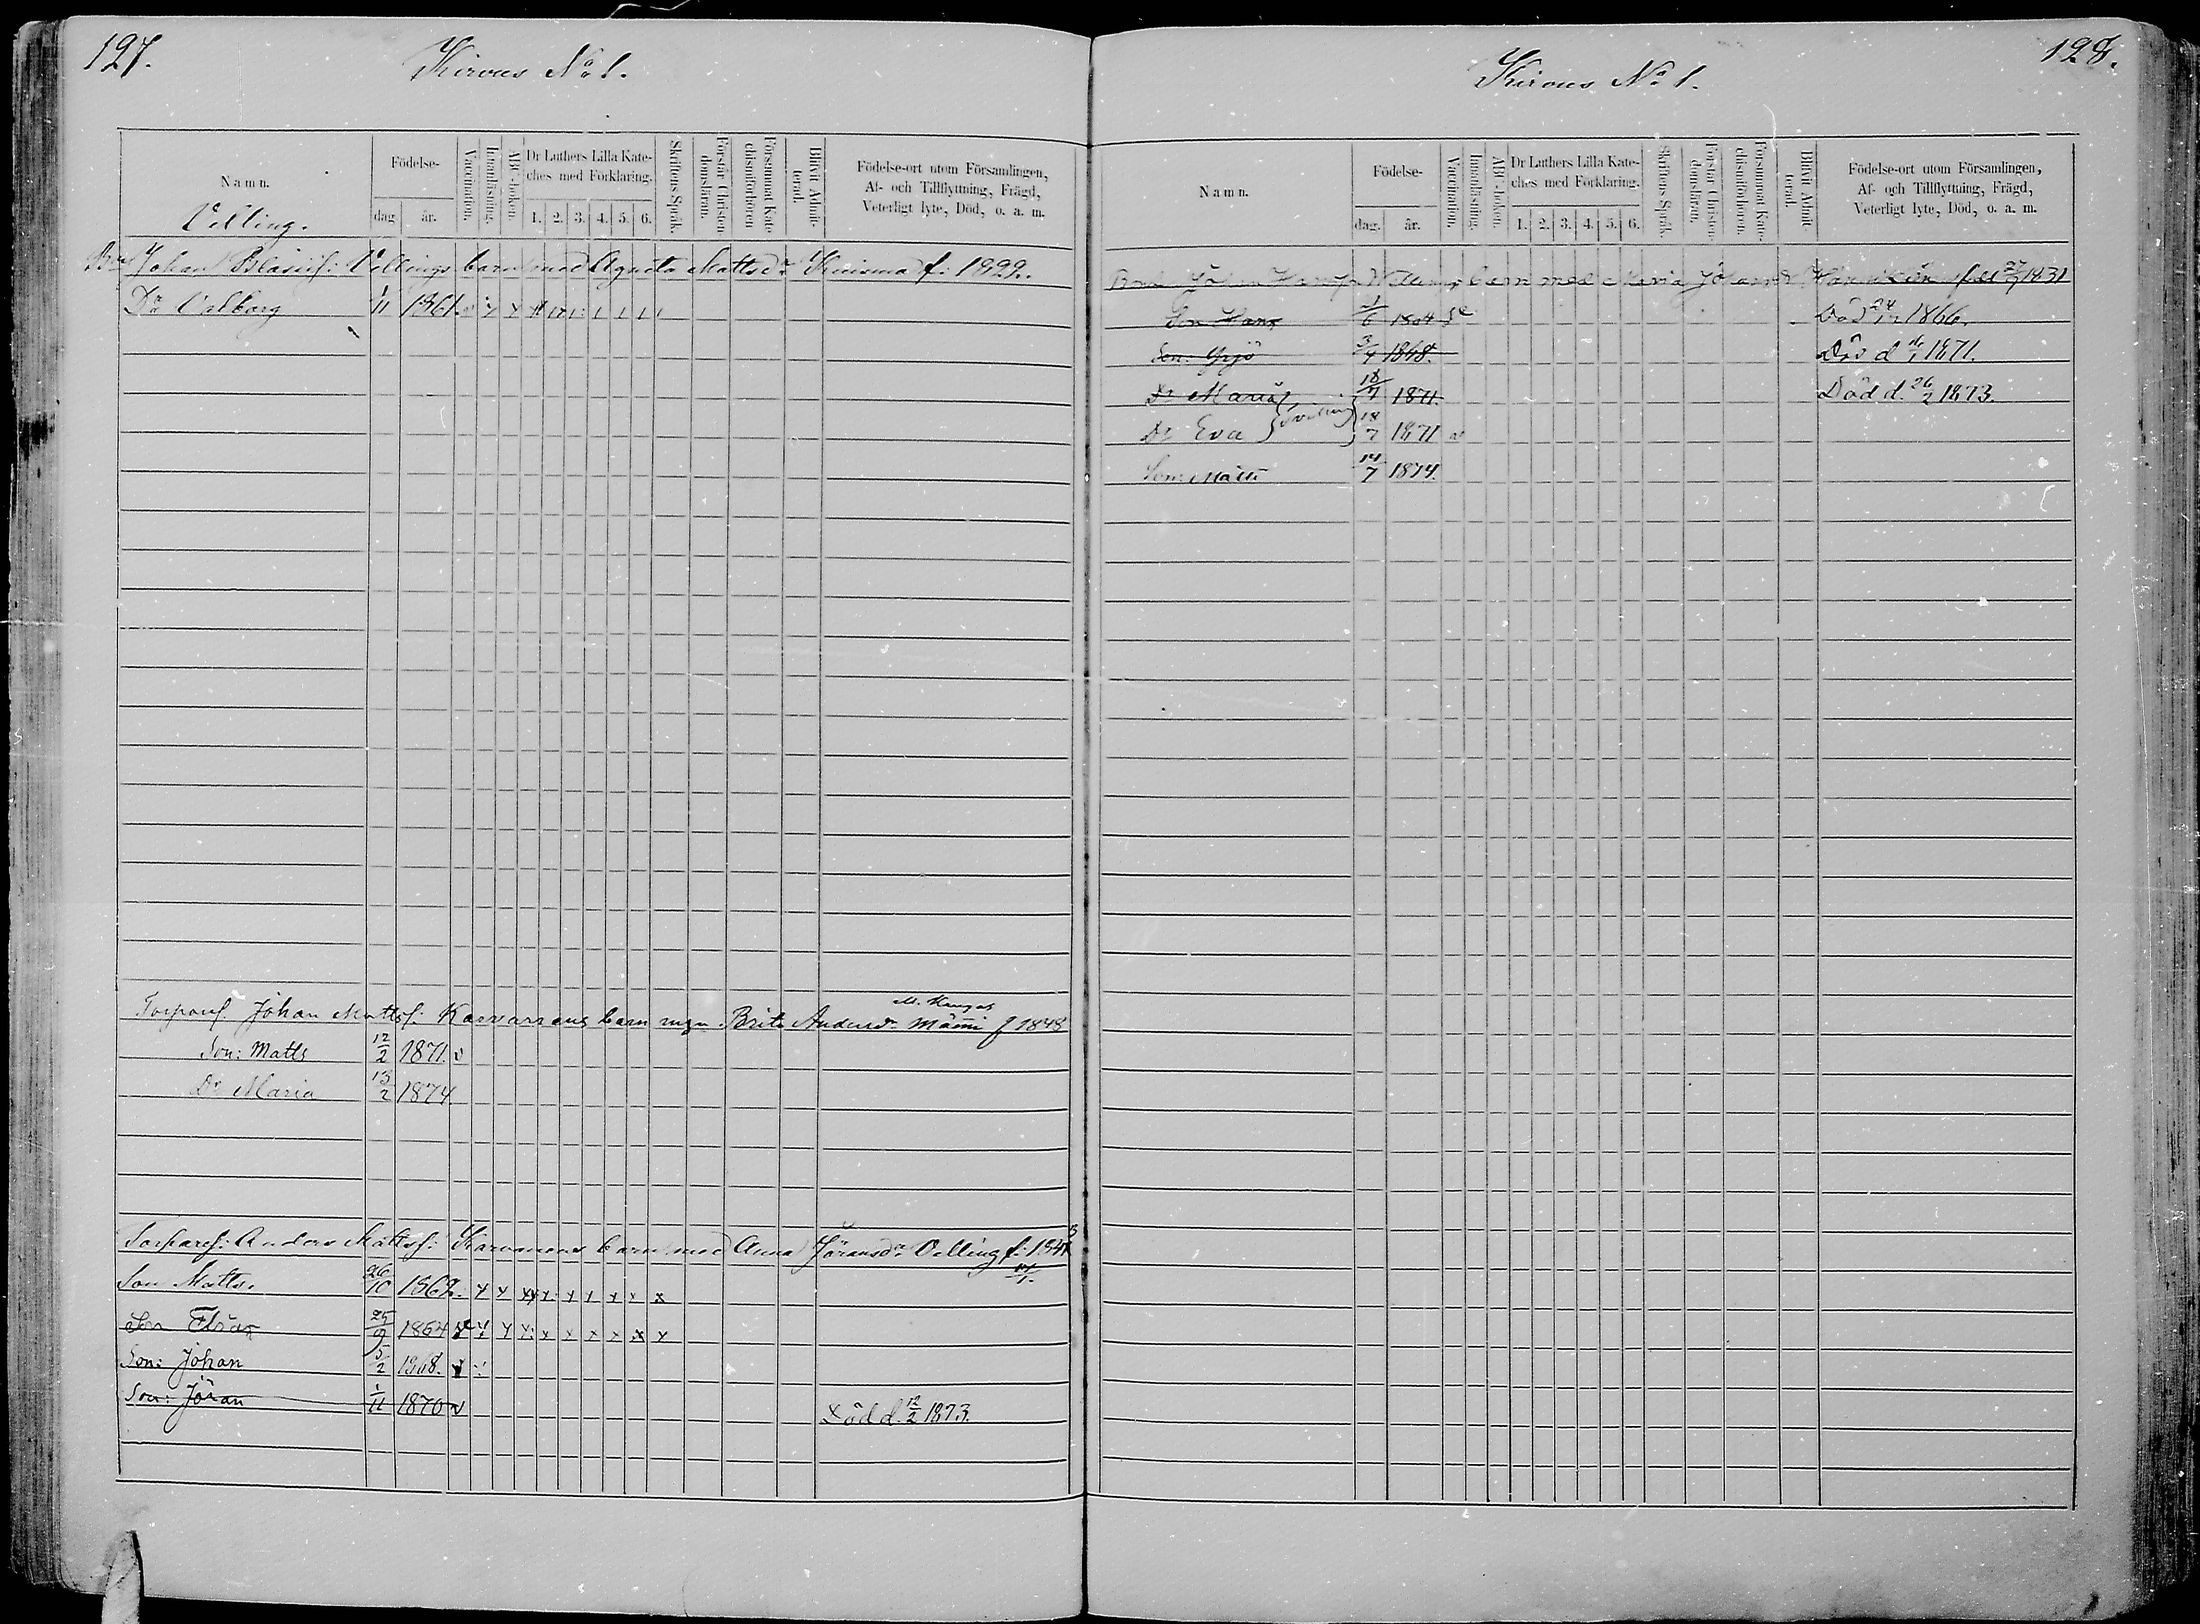 127.
Kirvus No 1.
Namn.
Födelse-
dag
år.
Vaccination.
Innanläsning.
ABC-boken.
Dr Luthers Lilla Kate-
ches med Förklaring.
1. 2. 3. 4. 5. 6.
Skriftens Språk.
Förstår Christen-
domsläran.
Försummat Kate-
chismiförhören
Blifvit Admit-
terad.
Födelse-ort utom Församlingen,
Af- och Tillflyttning, Frägd,
Veterligt lyte, Död, o. a. m.
Villing.
Johan Blasiis: Villings barn med Agneta Mattsdr f: 1822.
Dr Valborg 1/11 1861.
Johan Mattss: Karvanens barn Brita Andersdr Männi f 1848
Son: Matts 12/2 1871.
Dr Maria 13/2 1874
Torpares: Anders Mattss: Karvanens barn med Anna Jöransdr Villing f: 184
Son Matts. 26/10 1862.
Son Elias 25/9 1864
Son: Johan 5/2 1868.
Son: Jöran 1/11 1870 Död d. 12/2 1873.
128.
Kirvus No 1.
Namn.
Födelse-
dag.
år.
Vaccination.
Innanläsning.
ABC-boken.
Dr Luthers Lilla Kate-
ches med Förklaring.
1. 2. 3. 4. 5. 6.
Skriftens Språk.
Förstår Christen-
domsläran.
Försummat Kate-
chismiförhören.
Blifvit Admit-
terad.
Födelse-ort utom Församlingen,
Af- och Tillflyttning, Frägd,
Veterligt lyte, Död, o. a. m.
Johan barn med Maria Johansdr 1831
Son Hans 1/6 1864 Död 24/12 1866.
Son: Yrjö 3/4 1868. Död d 1871.
Dr Maria 18/7 1871. Död d. 26/2 1873.
Dr Eva 18/7 1871
Son: Matts 14/7 1874.